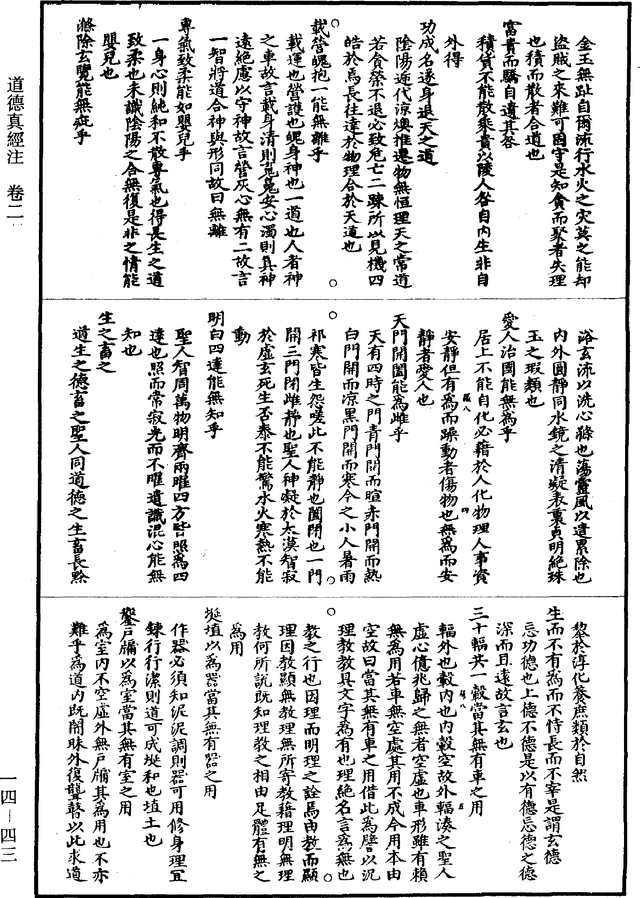 道德真經注　卷二
一四—四三
金玉無趾自爾流行水火之灾莫之能却
盜賊之來難可固守是知貪而聚者失理
也積而散者合道也
富貴而驕自遺其咎
積貨不能散乘貴以陵人咎自內生非自
外得
功成名遂身退天之道
陰陽遞代涼燠推遷物無恒理天之常道
若貪榮不退必致危亡二踈所以見機四
皓於焉長往達於物理合於天道也
載營魄抱一能無離乎
載運也營護也魄身神也一道也人者神
之車故言載身清則魂魄安心濁則真神
遠絕慮以守神故言營灰心無有二故言
一智將道合神與形同故曰無離
專氣致柔能如嬰兒乎
一身心則純和不散專氣也得長生之道
致柔也未識陰陽之合無復是非之情能
嬰兒也
滌除玄覽能無疵乎
浴玄流以洗心滌也蕩靈風以遣累除也
內外圓靜同水鏡之清凝表裏貞明絕珠
玉之瑕纇也
愛人治國能無為乎
居上不能自化必藉於人化物理人事資
安靜但有為而躁動者傷物也無為而安
靜者愛人也
天門開闔能為雌乎
天有四時之門青門開而暄赤門開而熱
白門開而凉黑門開而寒今之小人暑雨
祁寒皆生怨嗟此不能靜也闔閉也一門
開三門閉雌靜也聖人神凝於太漠智寂
於虛玄死生否泰不能驚水火寒熱不能
動
明白四達能無知乎
聖人智周萬物明齊兩曜四方皆照為四
達也照而常寂光而不曜遺識混心能無
知也
生之畜之
道生之德畜之聖人同道德之生畜長黔
黎於淳化養庶類於自然
生而不有為而不恃長而不宰是謂玄德
忘功德也上德不德是以有德忘德之德
深而且遠故言玄也
三十輻共一轂當其無有車之用
輻外也轂內也內轂空故外輻湊之聖人
虛心億兆歸之無者空虛也車形雖有賴
無為用若車無空處其用不成今用本由
空故曰當其無有車之用借此為譬以況
理教教具文字為有也理絕名言為無也
教之行也因理而明理之詮焉由教而顯
理因教顯無教理無所寄教藉理明無理
教何所說既知理教之相由足體有無之
為用
埏埴以為器當其無有器之用
作器必須知泥泥調則器可用修身理宜
鍊行行潔則道可成埏和也埴土也
鑿戶牖以為室當其無有室之用
為室內不空虛外無戶牖其為用也不亦
難乎為道內既闇昧外復聾瞽以此求道